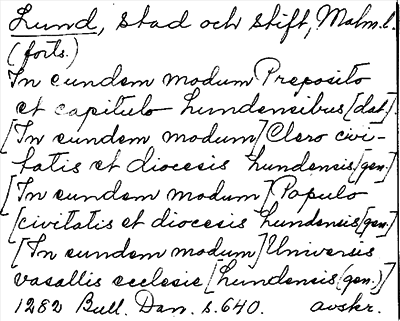 Lund, stad och stift, Malm.l.
(forts.)
In eundem modum Preposito
et capitulo Lundensibus [dat.]
[In eundem modum] Clero civi-
tatis et diocesis Lundensis [gen.]
[In eundem modum] Populo
civitatis et diocesis Lundensis [gen.]
[In eundem modum] Universis
vasallis ecclesie [Lundensis (gen.)]
1282 Bull. Dan. s. 640. avskr.